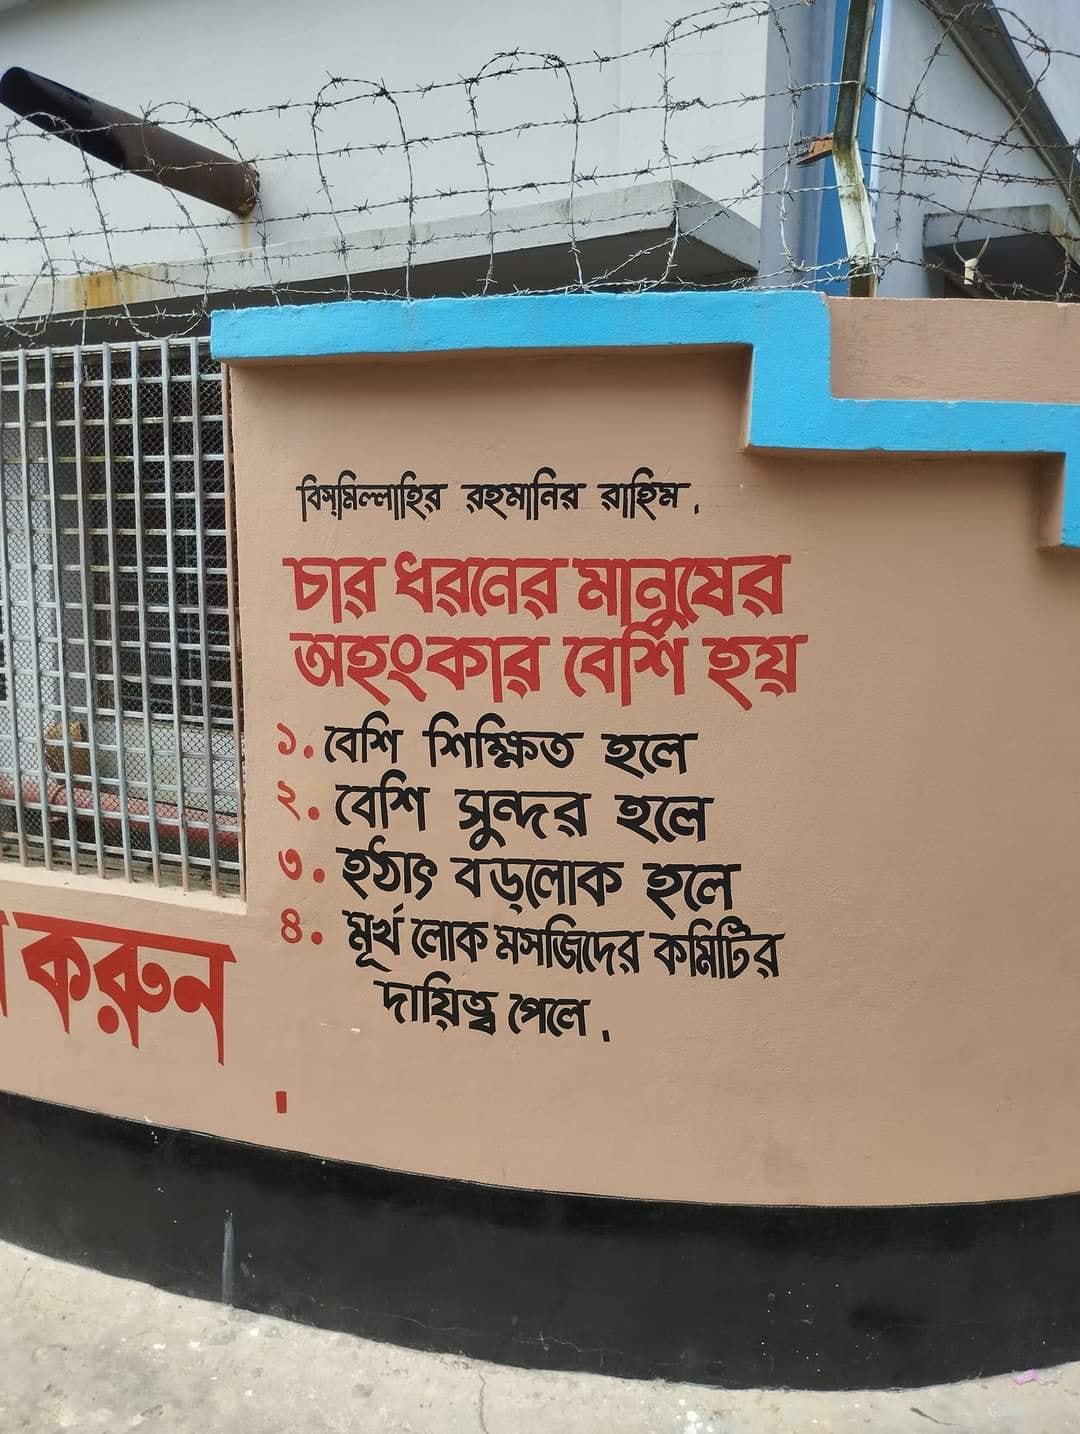 বিস্‌মিল্লাহির রহমানির রাহিম.
চার ধরনের মানুষের
অহংকার বেশি হয়
১. বেশি শিক্ষিত হলে
২. বেশি সুন্দর হলে
৩. হঠাৎ বড়লোক হলে
৪. মূর্খ লোক মসজিদের কমিটির
দায়িত্ব পেলে.
করুন